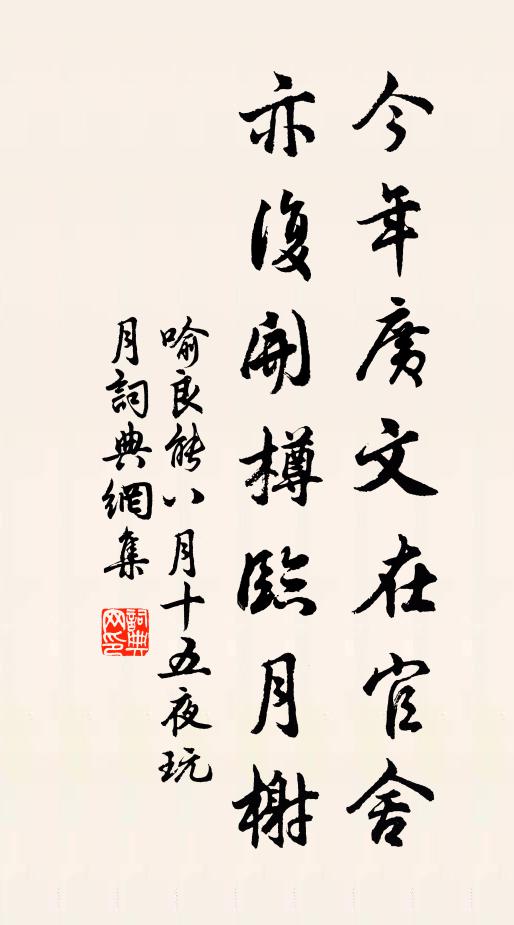 今年廣文在官舍
亦復開樽臨月榭
喻良能八月十五夜玩
月詞典網集
詞典
网印